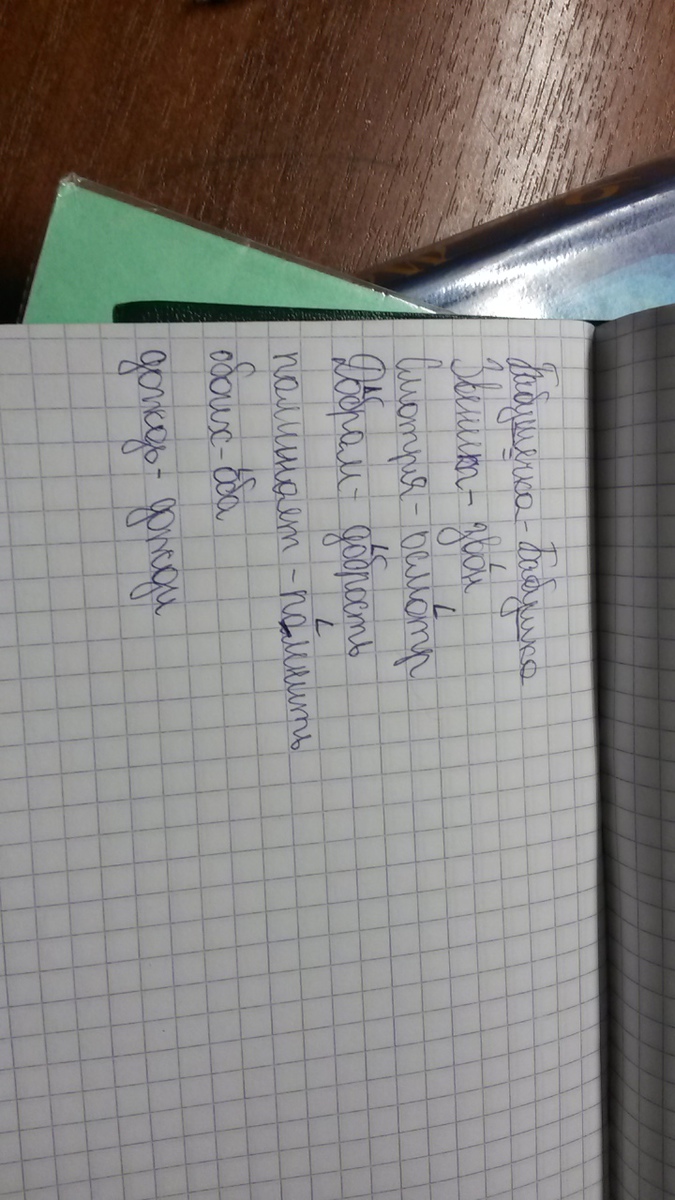 Бабушечка - Бабушка
Звенит - звон
Смотря - осмотр
Добрам - добрость
паминает - помнить
обоих - оба
дождь - дожди